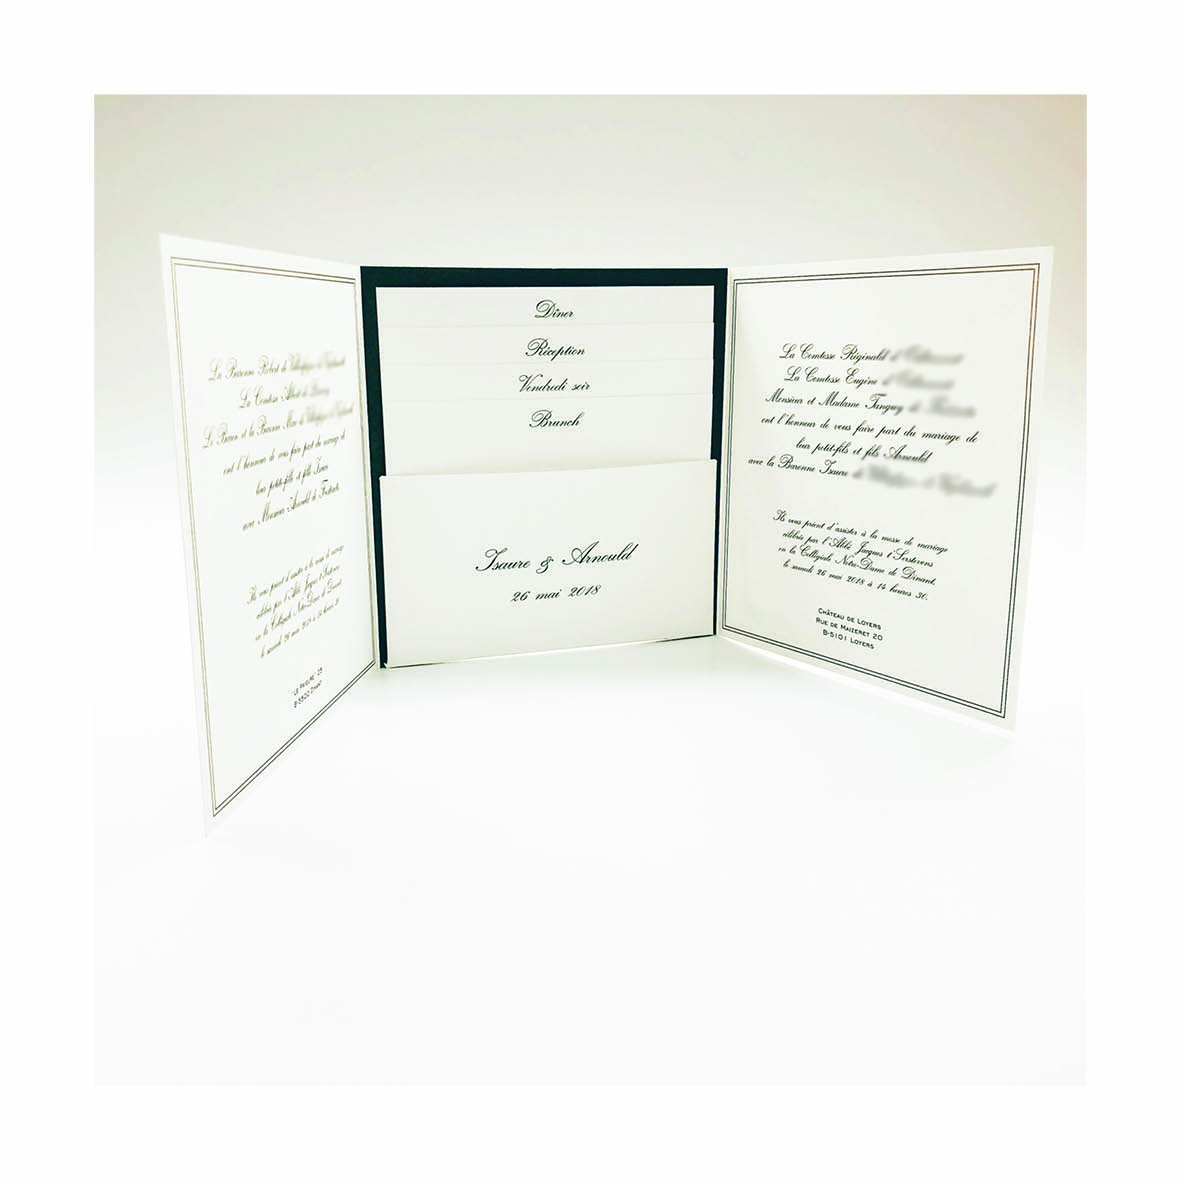 La Baronne Robert de
La Comtesse Albert de
Le Baron et la Baronne Marc de
ont l'honneur de vous faire part du mariage de
leur petite-fille et fille Isaure
avec Monsieur Arnould de
Ils vous prient d'assister à la messe de mariage
célébrée par l'Abbé Jacques t'Serstevens
en la Collégiale Notre-Dame de Dinant
le samedi 26 mai 2018 à 14 heures 30
"LE PRIEURÉ" 25
B-5500 DINANT
Dîner
Réception
Vendredi soir
Brunch
Isaure & Arnould
26 mai 2018
La Comtesse Réginald
La Comtesse Eugène
Monsieur et Madame Tanguy
ont l'honneur de vous faire part du mariage de
leur petit-fils et fils Arnould
avec la Baronne Isaure
Ils vous prient d'assister à la messe de mariage
célébrée par l'Abbé Jacques t'Serstevens
en la Collégiale Notre-Dame de Dinant,
le samedi 26 mai 2018 à 14 heures 30.
CHÂTEAU DE LOYERS
RUE DE MAIZERET 20
B-5101 LOYERS